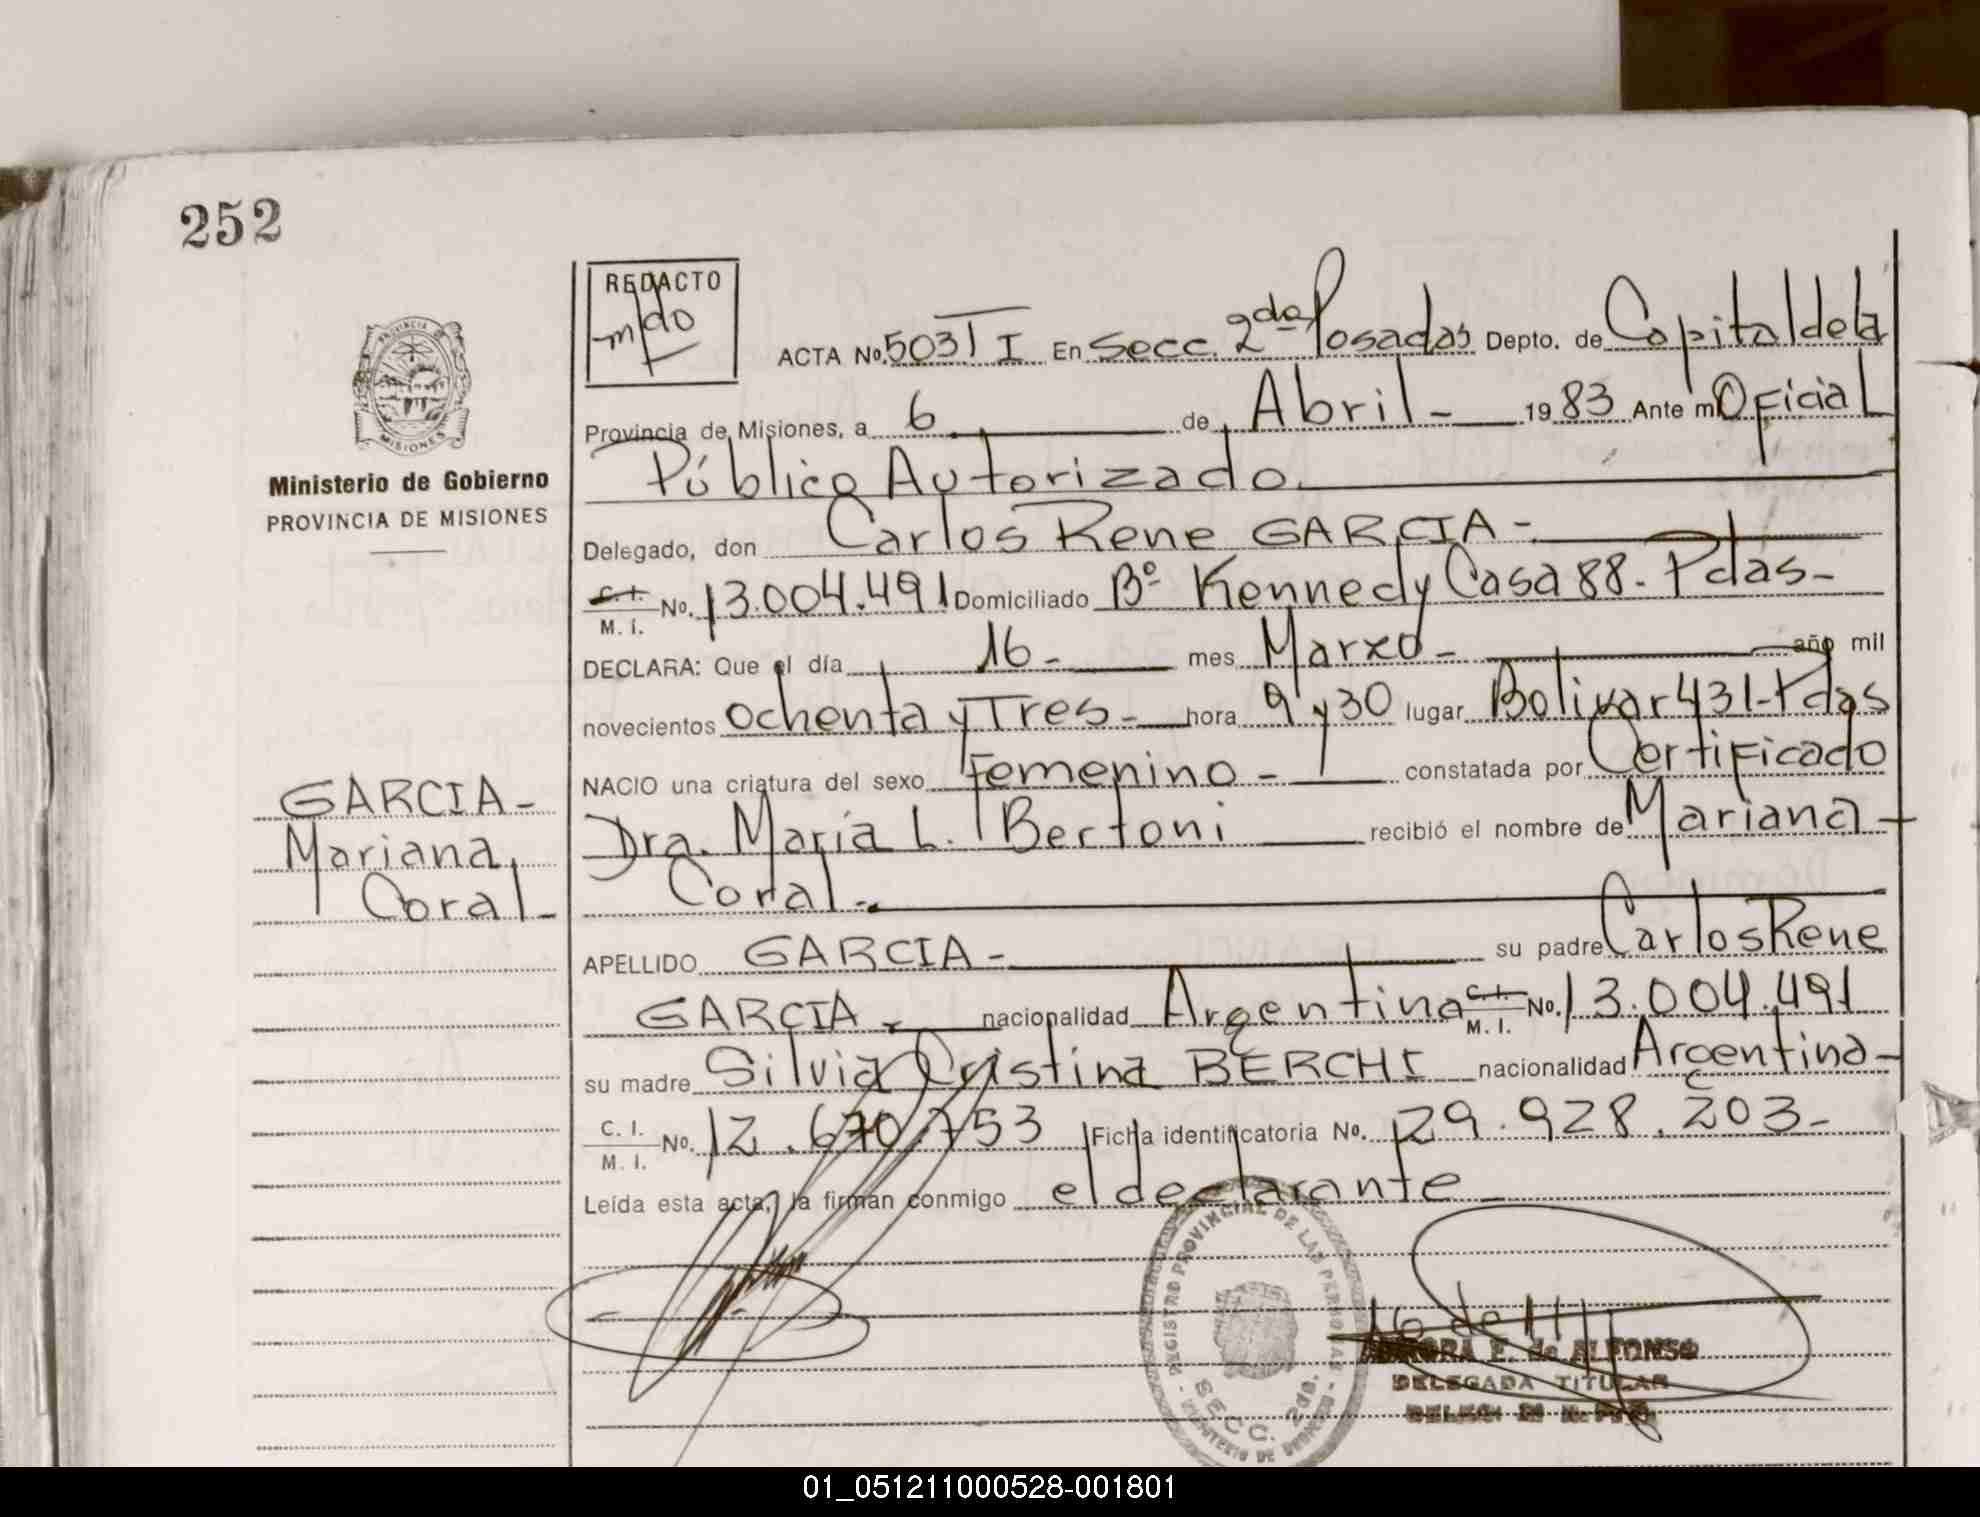 252
REDACTO
mdo
ACTA No. 503 T I En Secc. 2da Posadas Depto. de Capital de la
Provincia de Misiones, a 6 de Abril - 1983 Ante mi Oficial
Público Autorizado.
Delegado, don Carlos Rene GARCIA -
C. I. M. I. No. 13.004.491 Domiciliado Bº Kennedy Casa 88 - Pdas -
DECLARA: Que el día 16 - mes Marzo - año mil
novecientos ochenta y Tres - hora 9 y 30 lugar Bolivar 431 - Pdas
NACIO una criatura del sexo Femenino - constatada por Certificado
Dra. María L. Bertoni recibió el nombre de Mariana -
Coral -
APELLIDO GARCIA - su padre Carlos Rene
GARCIA - nacionalidad Argentina C. I. M. I. No. 13.004.491
su madre Silvia Cristina BERCHI nacionalidad Argentina -
C. I. M. I. No. 12.670.753 Ficha identificatoria No. 29.928.203 -
Leída esta acta, la firman conmigo el declarante -
PROVINCIA DE MISIONES
Ministerio de Gobierno
PROVINCIA DE MISIONES
GARCIA -
Mariana
Coral -
REGISTRO PROVINCIAL DE LAS PERSONAS
SECC. 2da.
MINISTERIO DE GOBIERNO
E. de ALFONSO
DELEGADA TITULAR
01_051211000528-001801